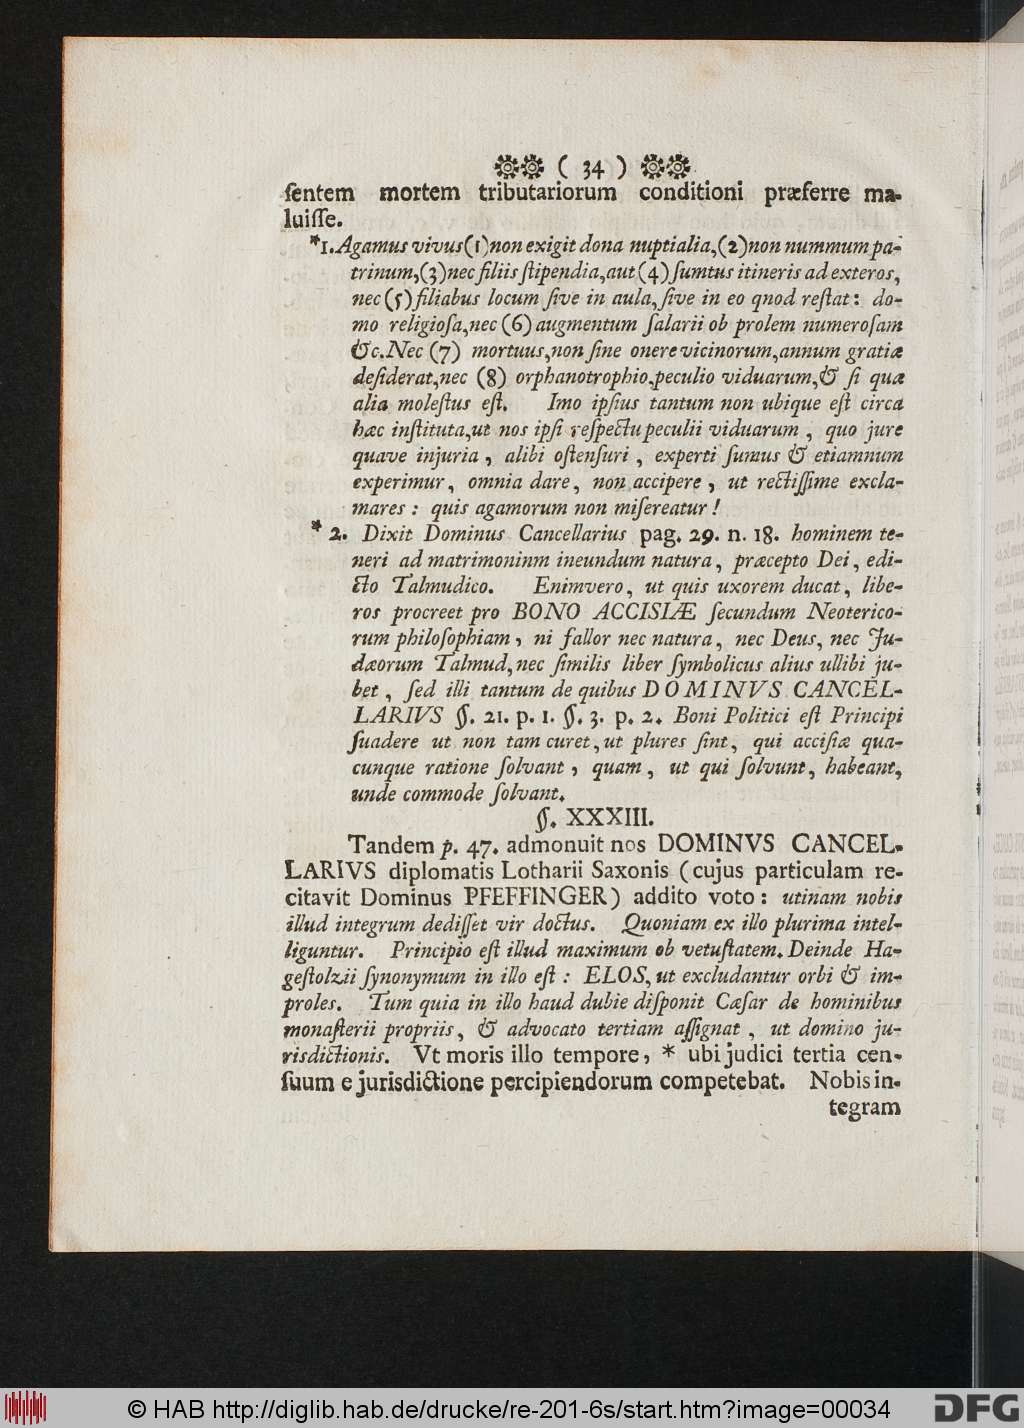 ( 34 )
ſentem mortem tributariorum conditioni præferre ma-
luiſſe.
*1. Agamus vivus (1) non exigit dona nuptialia, (2) non nummum pa-
trinum, (3) nec filiis ſtipendia, aut (4) ſumtus itineris ad exteros,
nec (5) filiabus locum ſive in aula, ſive in eo qnod reſtat: do-
mo religioſa, nec (6) augmentum ſalarii ob prolem numeroſam
&c. Nec (7) mortuus, non ſine onere vicinorum, annum gratiæ
deſiderat, nec (8) orphanotrophio, peculio viduarum, & ſi quæ
alia moleſtus eſt. Imo ipſius tantum non ubique eſt circa
hæc inſtituta, ut nos ipſi reſpectu peculii viduarum, quo jure
quave injuria, alibi oſtenſuri, experti ſumus & etiamnum
experimur, omnia dare, non accipere, ut rectiſſime excla-
mares: quis agamorum non miſereatur!
* 2. Dixit Dominus Cancellarius pag. 29. n. 18. hominem te-
neri ad matrimoninm ineundum natura, præcepto Dei, edi-
cto Talmudico. Enimvero, ut quis uxorem ducat, libe-
ros procreet pro BONO ACCISIÆ ſecundum Neoterico-
rum philoſophiam, ni fallor nec natura, nec Deus, nec Ju-
dæorum Talmud, nec ſimilis liber ſymbolicus alius ullibi ju-
bet, ſed illi tantum de quibus DOMINVS CANCEL-
LARIVS §. 21. p. 1. §. 3. p. 2. Boni Politici eſt Principi
ſuadere ut non tam curet, ut plures ſint, qui acciſiæ qua-
cunque ratione ſolvant, quam, ut qui ſolvunt, habeant,
unde commode ſolvant.
§. XXXIII.
Tandem p. 47. admonuit nos DOMINVS CANCEL-
LARIVS diplomatis Lotharii Saxonis (cujus particulam re-
citavit Dominus PFEFFINGER) addito voto: utinam nobis
illud integrum dediſſet vir doctus. Quoniam ex illo plurima intel-
liguntur. Principio eſt illud maximum ob vetuſtatem. Deinde Ha-
geſtolzii ſynonymum in illo eſt: ELOS, ut excludantur orbi & im-
proles. Tum quia in illo haud dubie diſponit Cæſar de hominibus
monaſterii propriis, & advocato tertiam aſſignat, ut domino ju-
risdictionis. Vt moris illo tempore, * ubi judici tertia cen-
ſuum e jurisdictione percipiendorum competebat. Nobis in-
tegram
© HAB http://diglib.hab.de/drucke/re-201-6s/start.htm?image=00034
DFG